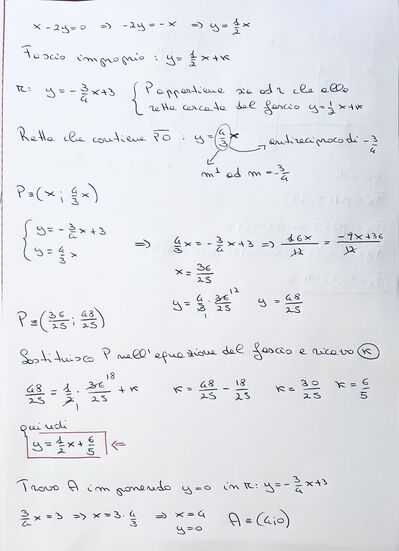 x - 2y = 0 ⇒ -2y = -x ⇒ y = 1/2 x
Fascio improprio : y = 1/2 x + k
r: y = -3/4 x + 3 { P appartiene sia ad r che alla
retta cercata del fascio y = 1/2 x + k
Retta che contiene PO : y = 4/3 x antireciproco di -3/4
m' ad m = -3/4
P ≡ (x ; 4/3 x)
{ y = -3/4 x + 3
y = 4/3 x ⇒ 4/3 x = -3/4 x + 3 ⇒ 16x/12 = -9x+36/12
x = 36/25
y = 4/3 · 36/25 12 1 y = 48/25
P ≡ (36/25 ; 48/25)
Sostituisco P nell'equazione del fascio e ricavo k
48/25 = 1/2 · 36/25 18 1 + k k = 48/25 - 18/25 k = 30/25 k = 6/5
quindi
y = 1/2 x + 6/5 ⇐
Trovo A imponendo y = 0 in r: y = -3/4 x + 3
3/4 x = 3 ⇒ x = 3 · 4/3 ⇒ x = 4 A ≡ (4;0)
y = 0